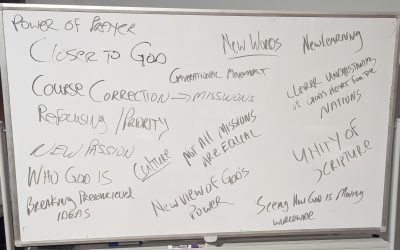 Power of Prayer
Closer to God
New Words
New learning
Conventional Movement
Course Correction → missions
Clearer understanding
of God's Heart for the
Nations
Refocusing / Priority
New Passion
Culture
Not all missions
are equal
Unity of
Scripture
Who God is
Breaking Preconceived
ideas
New view of God's
Power
Seeing How God is Moving
worldwide